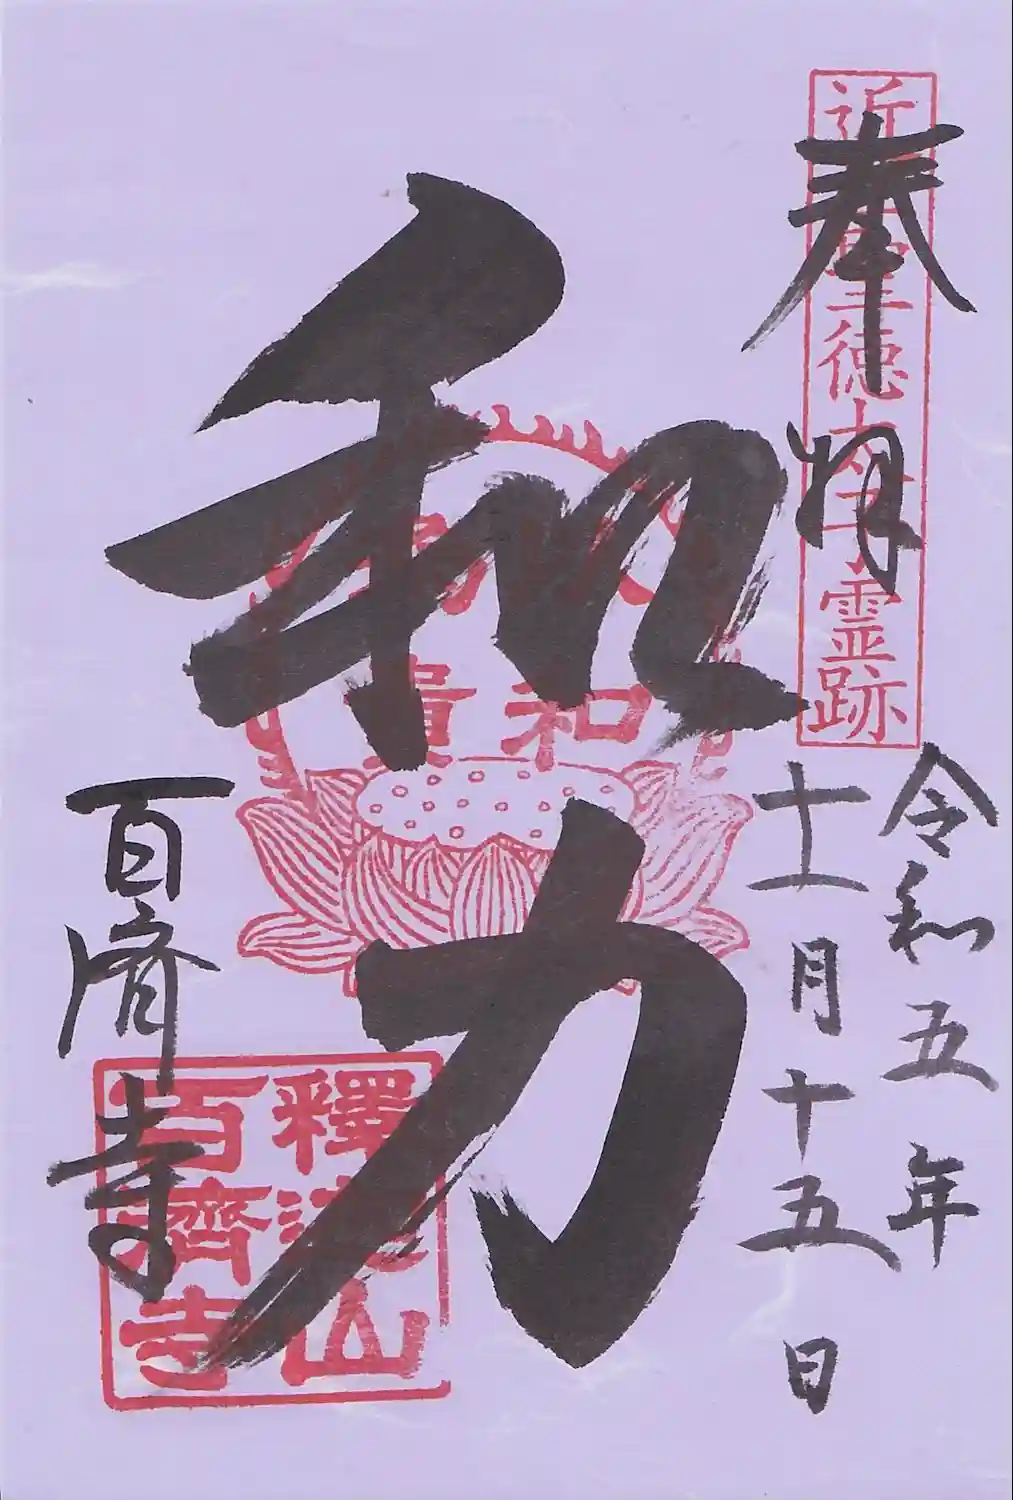 奉拝
近江聖徳太子霊跡
令和五年
十一月十五日
和力
和
貴
百済寺
釋迦山
百濟寺